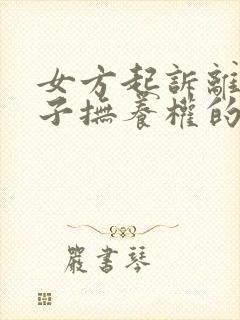 女方起訴離
子撫養權的
嚴書琴